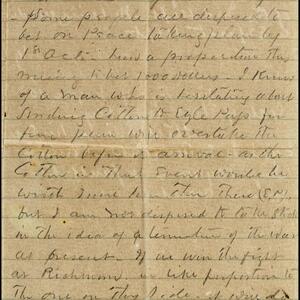 Some people are disposed to
bet on Peace taking place by
1st Oct. had a proposition this
morning to bet 1000 dollars - I know
of a man who is hesitating about
sending Cotton to Eagle Pass for
fear peace will overtake the
Cotton before its arrival - as the
Cotton in that event would be
worth more here than there (E.P.)
but I am not disposed to
in the idea of a termination of the war
as present - If we win the fight
at Richmond in like proportion to
the one on this side of